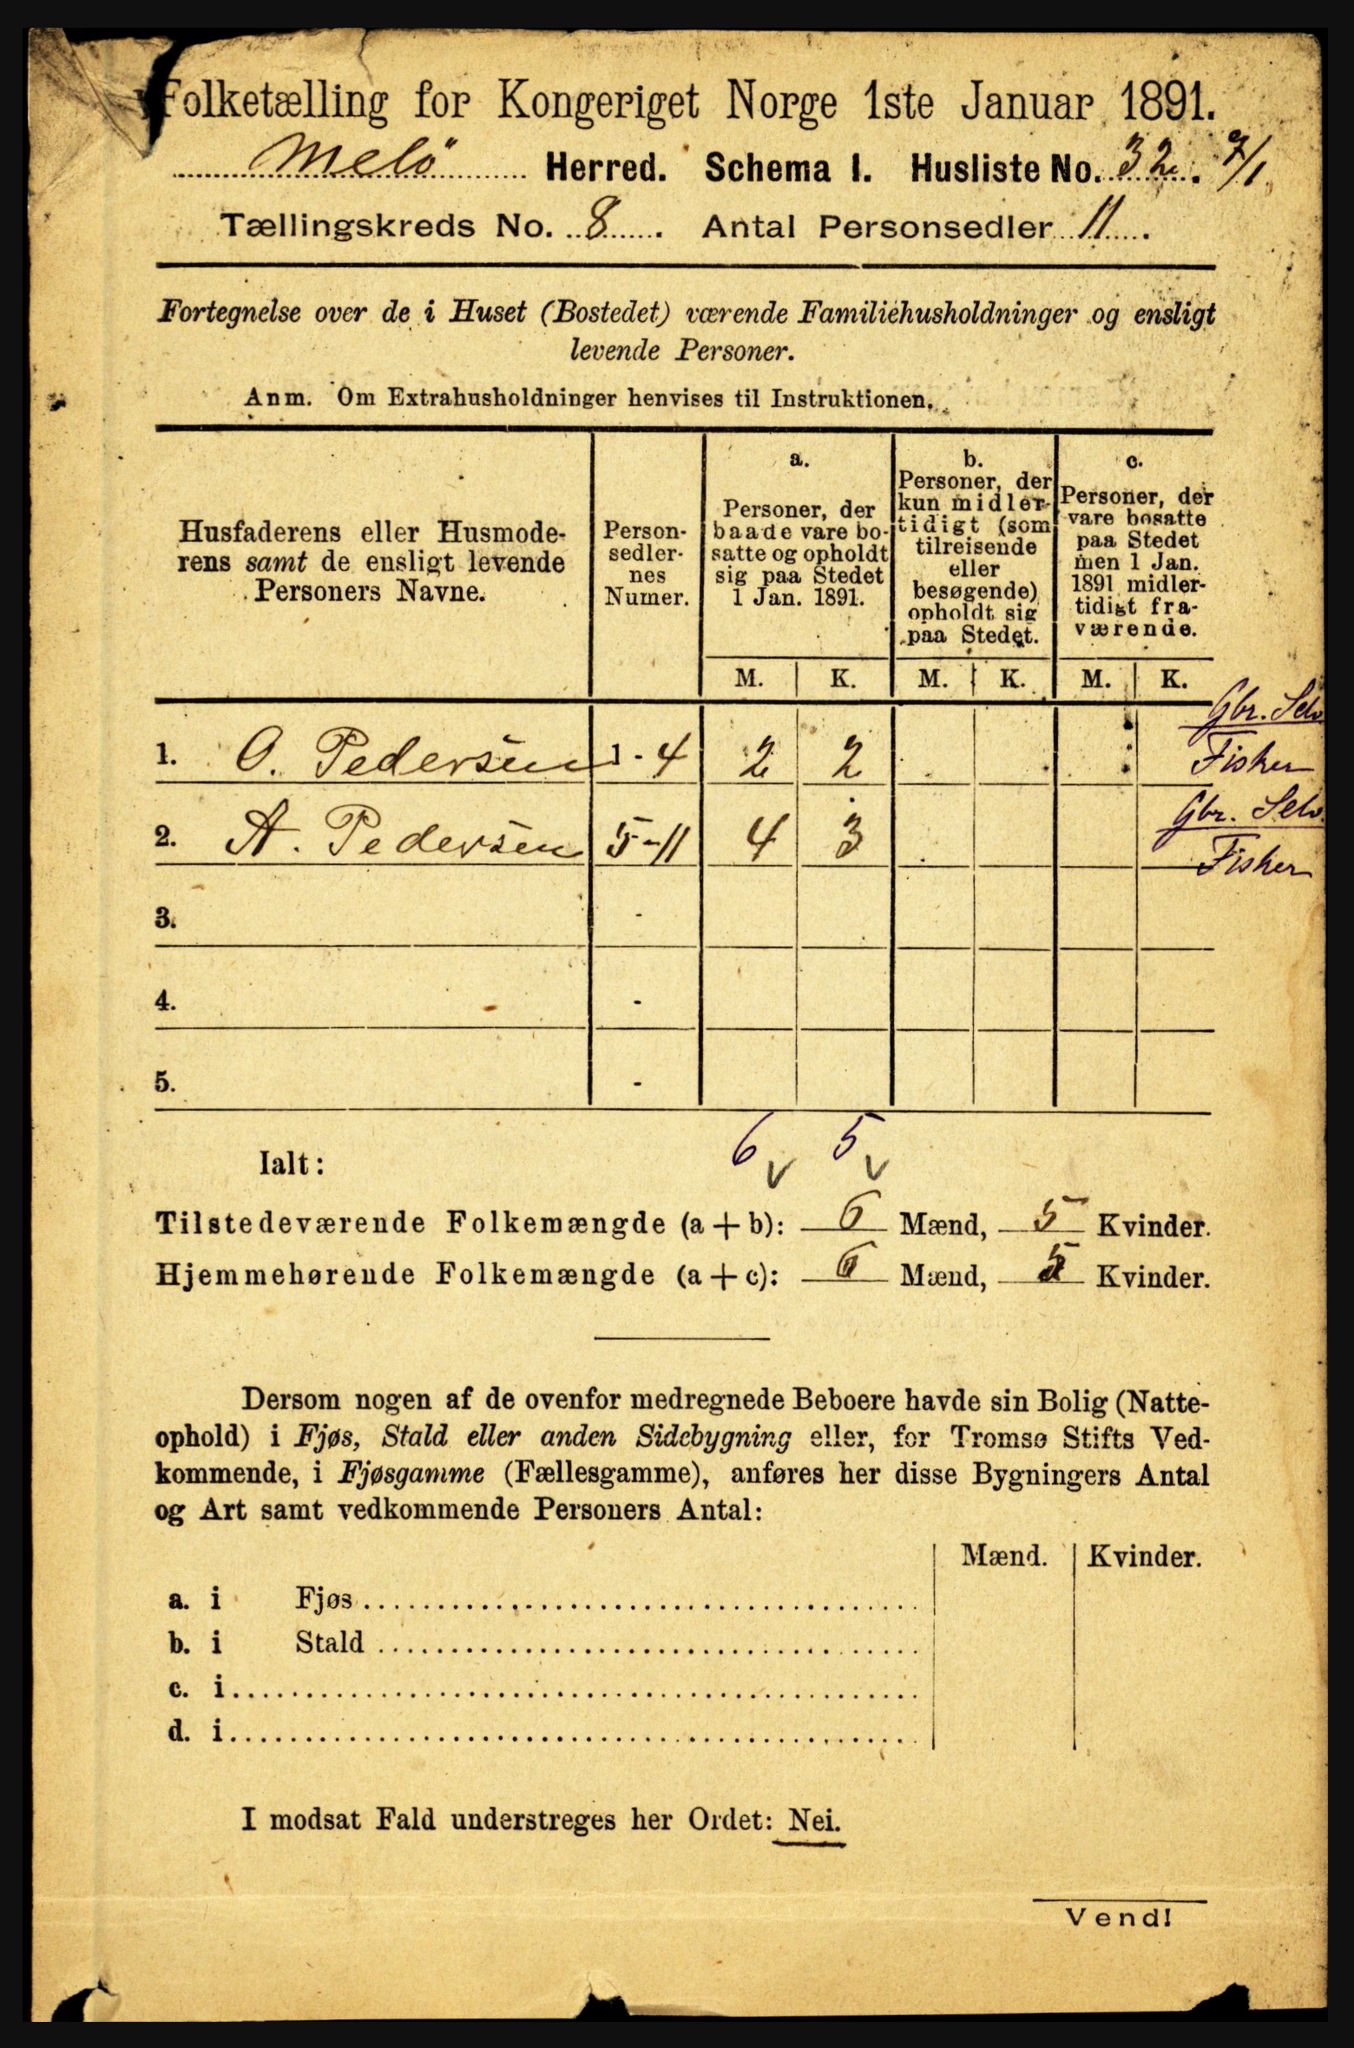 Folketælling for Kongeriget Norge 1ste Januar 1891.
Melö Herred. Schema I. Husliste No. 32. 7/1
Tællingskreds No. 8. Antal Personsedler 11.
Fortegnelse over de i Huset (Bostedet) værende Familiehusholdninger og ensligt
levende Personer.
Anm. Om Extrahusholdninger henvises til Instruktionen.
Husfaderens eller Husmode-
rens samt de ensligt levende
Personers Navne.
Person-
sedler-
nes
Numer.
a.
Personer, der
baade vare bo-
satte og opholdt
sig paa Stedet
1 Jan. 1891.
b.
Personer, der
kun midler-
tidigt (som
tilreisende
eller
besøgende)
opholdt sig
paa Stedet.
c.
Personer, der
vare bosatte
paa Stedet
men 1 Jan.
1891 midler-
tidigt fra-
værende.
M. K. M. K. M. K.
Gbr. Selv
1. O. Pedersen 1-4 2 2 Fisker
Gbr. Selv
2. A. Pedersen 5-11 4 3 Fisker
3. -
4. -
5. -
6 5
Ialt: v v
Tilstedeværende Folkemængde (a + b): 6 Mænd, 5 Kvinder.
Hjemmehørende Folkemængde (a + c): 6 Mænd, 5 Kvinder.
Dersom nogen af de ovenfor medregnede Beboere havde sin Bolig (Natte-
ophold) i Fjøs, Stald eller anden Sidebygning eller, for Tromsø Stifts Ved-
kommende, i Fjøsgamme (Fællesgamme), anføres her disse Bygningers Antal
og Art samt vedkommende Personers Antal:
Mænd. Kvinder.
a. i Fjøs
b. i Stald
c. i
d. i
I modsat Fald understreges her Ordet: Nei.
Vend!